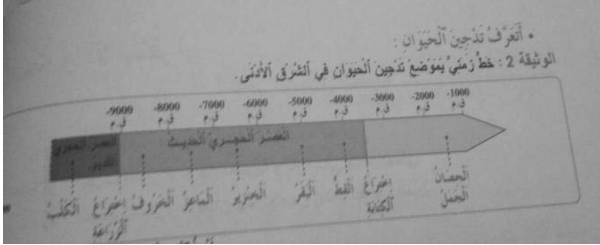 • أَتَعَرَّفُ تَدْجِينَ ٱلْحَيَوَانِ :
الوثيقة 2 : خَطٌّ زَمَنِيٌّ يُمَوْضِعُ تَدْجِينَ ٱلْحَيَوَانِ فِي ٱلشَّرْقِ ٱلْأَدْنَى.
-9000 -8000 -7000 -6000 -5000 -4000 -3000 -2000 -1000
ق.م ق.م ق.م ق.م ق.م ق.م ق.م ق.م ق.م
العصر الحجري القديم
العصر الحجري الحديث
اَلْكَلْبُ
اِخْتِرَاعُ الزِّرَاعَةِ
اَلْخَرُوفُ
اَلْمَاعِزُ
اَلْخِنْزِيرُ
اَلْبَقَرُ
اَلْقِطُّ
اِخْتِرَاعُ الْكِتَابَةِ
اَلْحِصَانُ
اَلْجَمَلُ